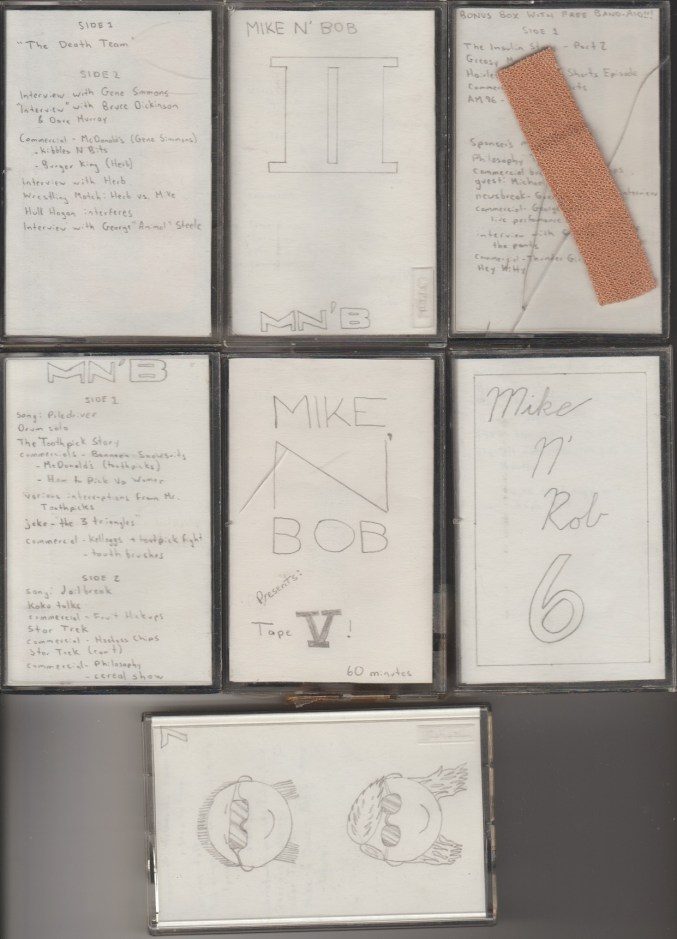 SIDE 1
"The Death Team"
SIDE 2
Interview with Gene Simmons
"Interview" with Bruce Dickinson
& Dave Murray
Commercial - McDonald's (Gene Simmons)
- Kibbles N Bits
- Burger King (Herb)
Interview with Herb
Wrestling Match: Herb vs. Mike
Hulk Hogan interferes
Interview with George "Animal" Steele
MIKE N' BOB
II
MN'B
BONUS BOX WITH FREE BAND-AID!!!
SIDE 1
The Insulin - Part 2
Greasy
Shorts Episode
AM 96 -
Sponsor's
Philosophy
Commercial
guest: Michael
newsbreak-
commercial-
live performance
interview with
the pants
commercial-Thunder
Hey Kitty
MN'B
SIDE 1
song: Piledriver
Drum solo
The Toothpick Story
commercials - Banana
- McDonald's (toothpicks)
- How to Pick Up Women
Various interruptions from Mr.
Toothpicks
joke - "the 3 triangles"
commercial - Kelloggs toothpick fight
- tooth brushes
SIDE 2
song: Jailbreak
Koko talks
commercial - Hickups
Star Trek
commercial - Chips
Star Trek (con't)
commercial - Philosophy
- cereal show
MIKE
N'
BOB
Presents:
Tape V!
60 minutes
Mike
N'
Rob
6
7